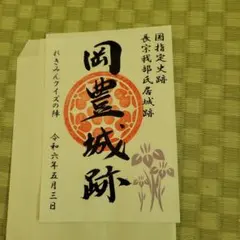 国指定史跡
長宗我部氏居城跡
岡豊城跡
れきみんクイズの陣
令和六年五月三日